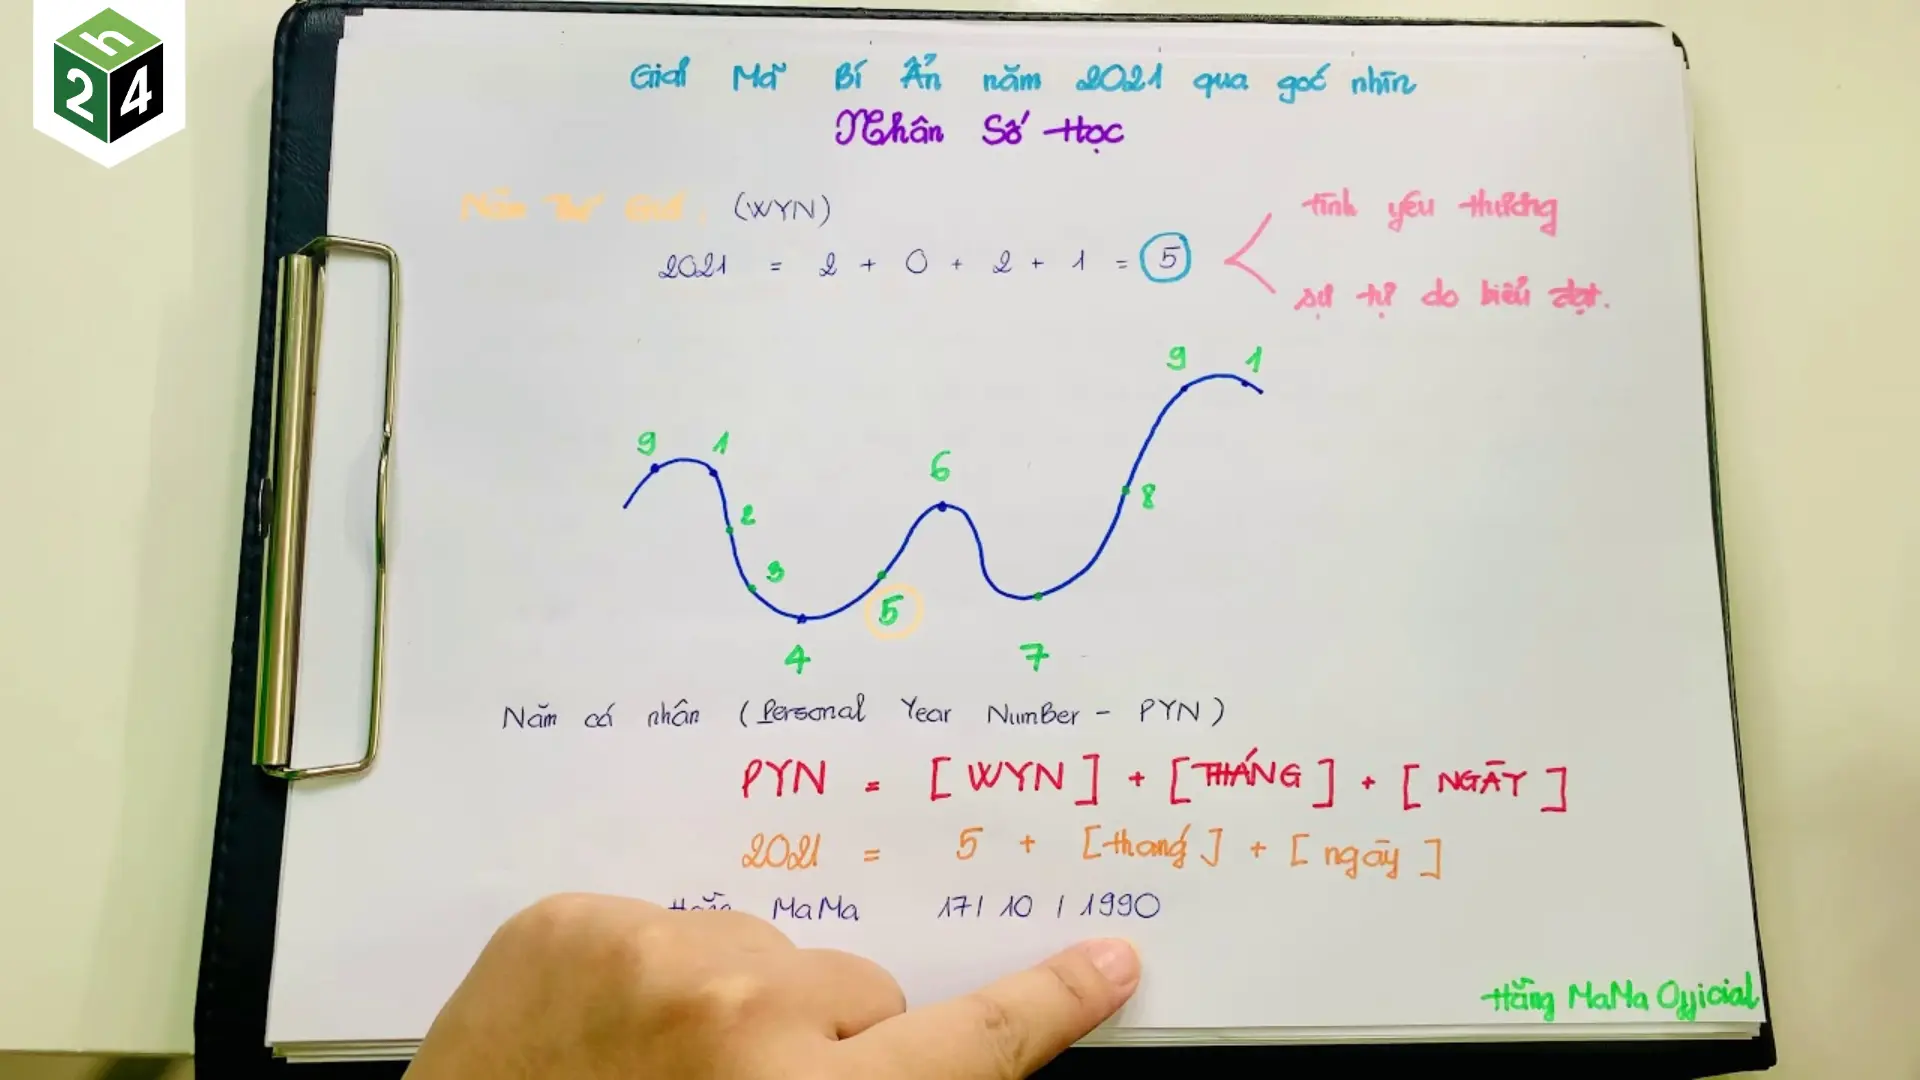 24h
Giải Mã Bí Ẩn năm 2021 qua góc nhìn
Nhân Số Học
Năm Thế Giới : (WYN)
tình yêu thương
2021 = 2 + 0 + 2 + 1 = 5
sự tự do biểu đạt.
9 1
9 1
6
2
8
3
5
4
7
Năm cá nhân (Personal Year NumBer - PYN)
PYN = [WYN] + [THÁNG] + [NGÀY]
2021 = 5 + [tháng] + [ngày]
Hằng MaMa 17/ 10 / 1990
Hằng MaMa Official